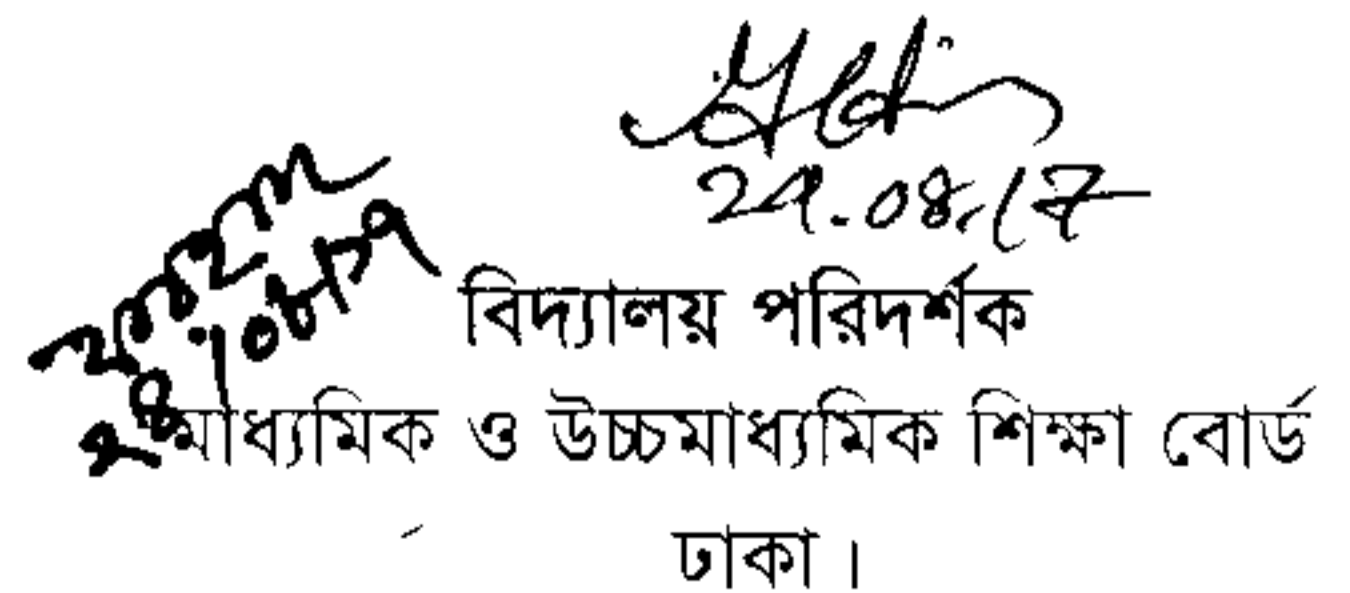 24.08.17
বিদ্যালয় পরিদর্শক
মাধ্যমিক ও উচ্চমাধ্যমিক শিক্ষা বোর্ড
ঢাকা।